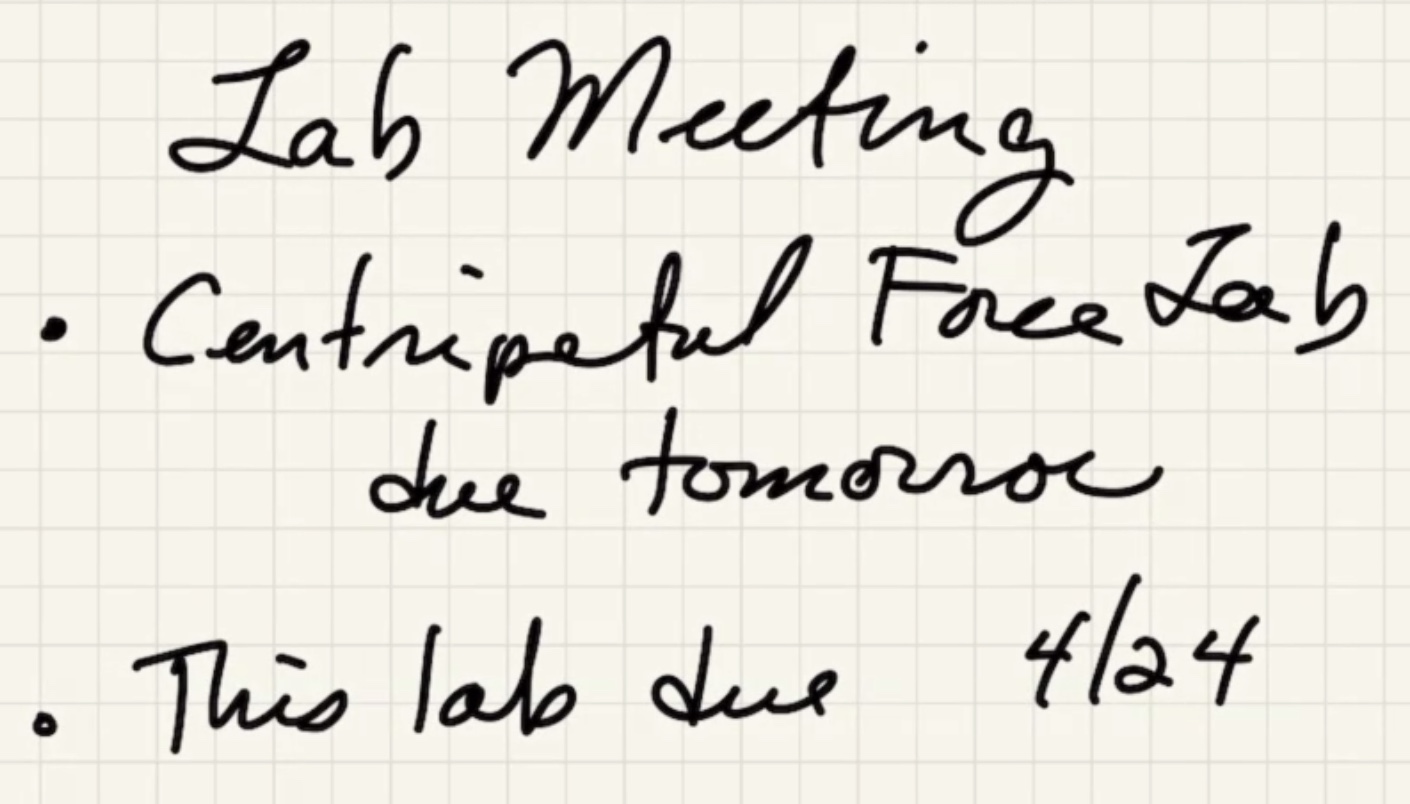 Lab Meeting
• Centripetal Force Lab
due tomorrow
• This lab due 4/24